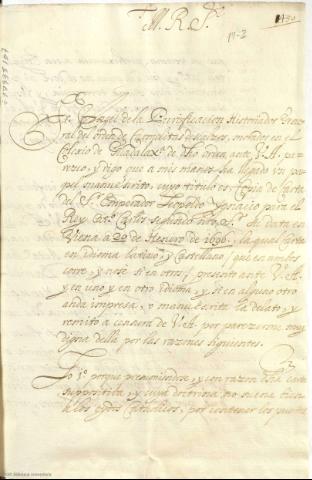 M. R. S.
Fr. Angel de la Purificacion Historiador Gene-
ral del orden de Carmelitas descalzos, morador en el
Colexio de Guadalax.ª de dho orden ante V.A. pa-
rezco, y digo que a mis manos ha llegado un pa-
pel manuscrito, cuyo titulo es, Copia de Carta
del S.r Emperador Leopoldo Ignacio para el
Rey D. Carlos segundo nro S.r su data en
Viena a 20 de Henero de 1696. la qual Carta
en idioma latino, y Castellano (que en ambos
corre, y no se si en otros) presento ante V.A.
y en uno y en otro idioma, y si en alguno otro
anda impressa, o manuscrita la delato, y
remito a censura de V.A. por parecerme muy
digna della por las razones siguientes.
Lo 1º porque presumiendose, y con razon dha carta
suppositicia, y cuya doctrina no suena bien
a los oydos Catholicos, por contener los puntos